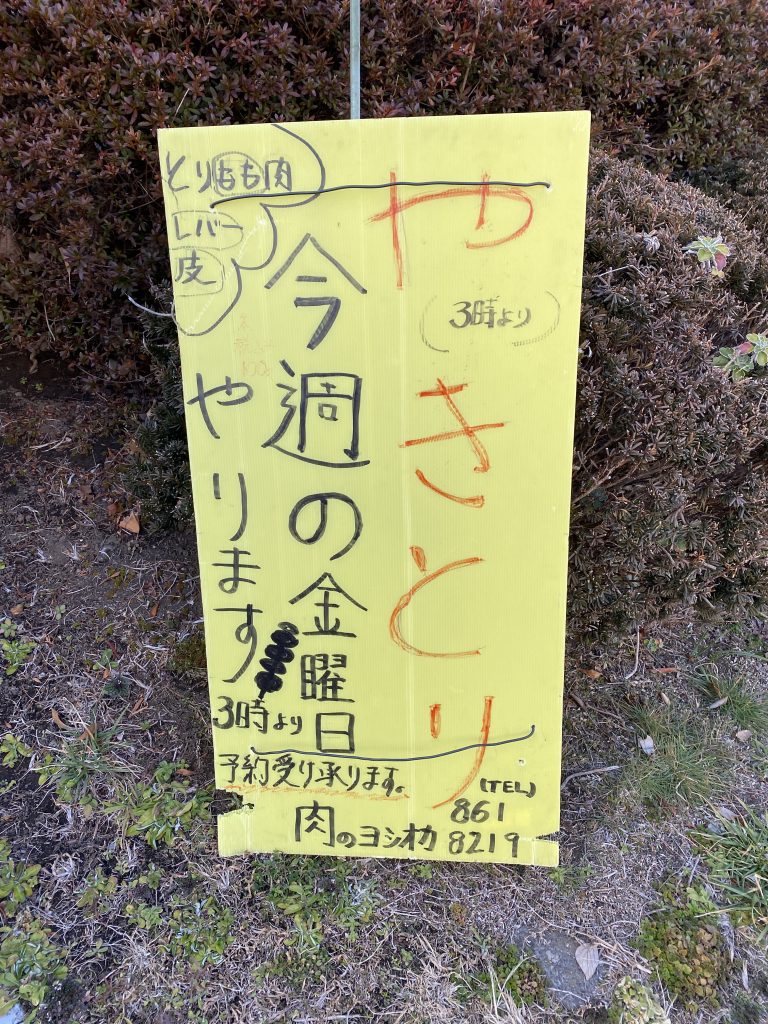 やきとり
(3時より)
今週の金曜日
やります
3時より
とりもも肉
レバー
皮
予約受け承ります。
(TEL)
861
8219
肉のヨシオカ